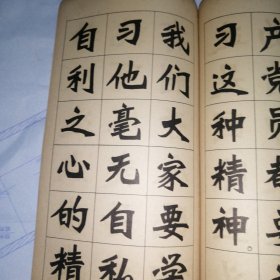 产党员都
习这种精神。
我们大家要学
习他毫无自私
自利之心的精